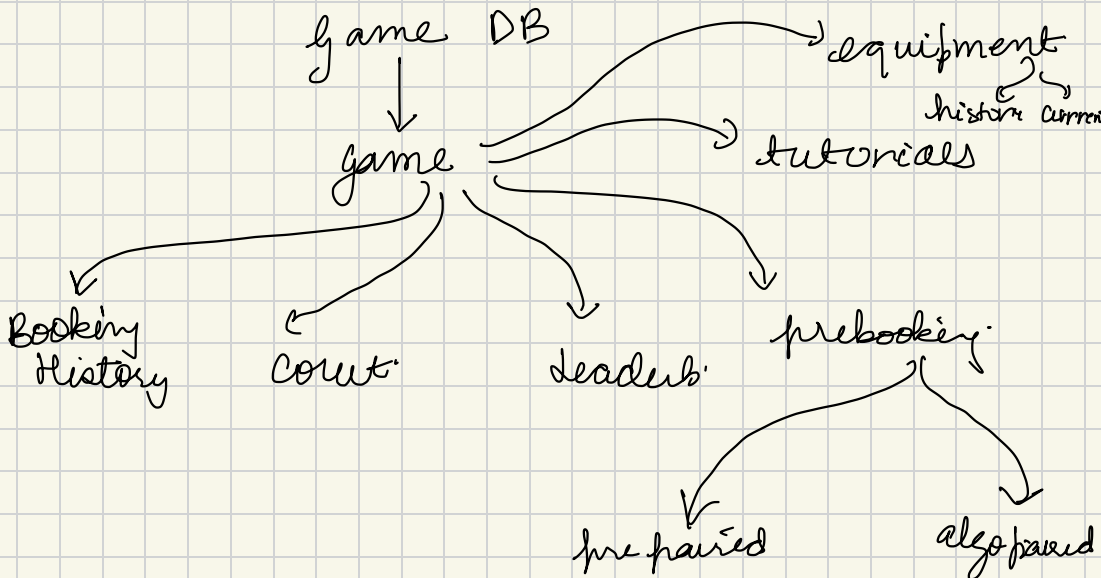 Game DB
equipment
history current
game
tutorials
Booking
History
Court
Leaderb.
prebooking
pre paired
algo paired